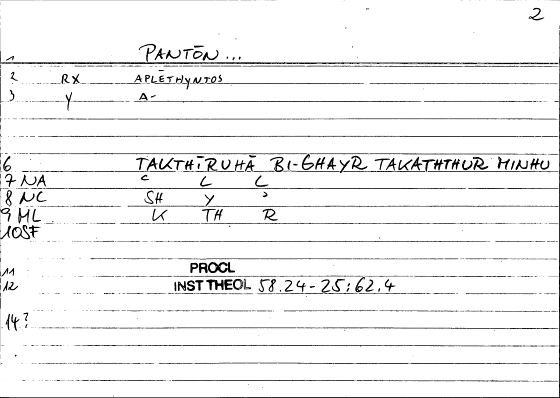 2
1 PANTŌN...
2 RX APLĒTHYNTOS
3 Y A-
6 TAKTHĪRUHĀ BI-GHAYR TAKATHTHUR MINHU
7 NA C L L
8 NC SH Y ʾ
9 ML K TH R
10 SF
11 PROCL
12 INST THEOL 58.24-25; 62.4
14?